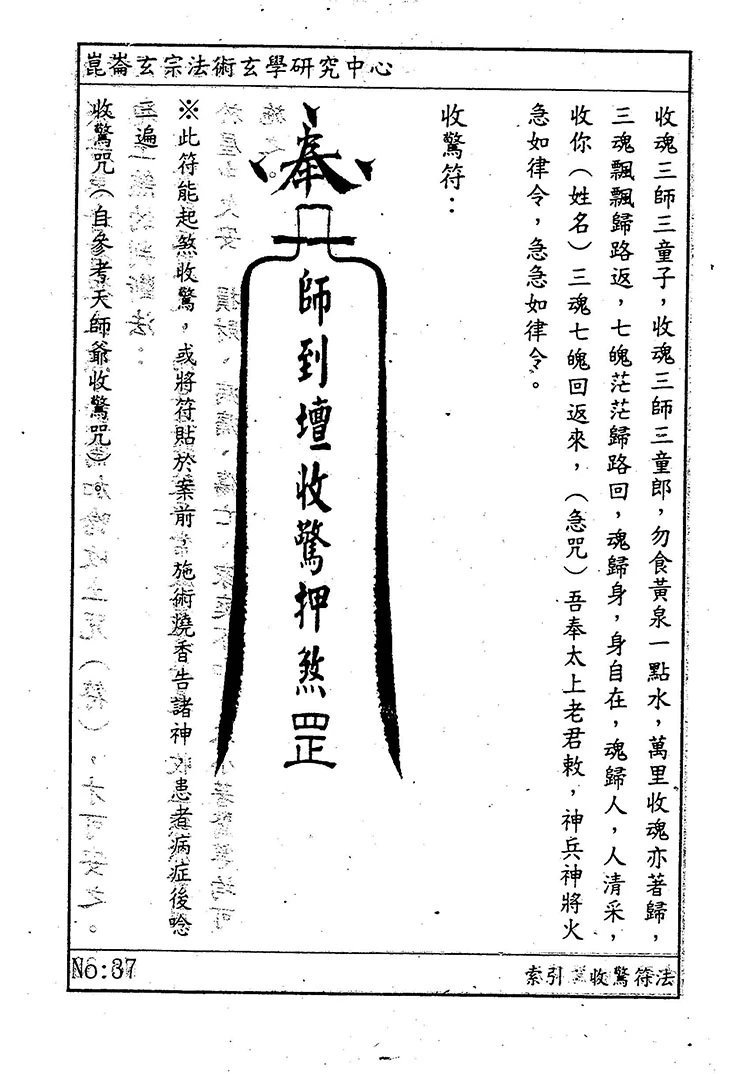 崑崙玄宗法術玄學研究中心
收魂三師三童子，收魂三師三童郎，勿食黃泉一點水，萬里收魂亦著歸，
三魂飄飄歸路返，七魄茫茫歸路回，魂歸身，身自在，魂歸人，人清采，
收你（姓名）三魂七魄回返來，（急咒）吾奉太上老君敕，神兵神將火
急如律令，急急如律令。
收驚符：
奉
師到壇收驚押煞罡
※此符能起煞收驚，或將符貼於案前，施術燒香告諸神，患者病症後唸
三遍
收驚咒（自參考天師爺收驚咒）。
No:37
索引：收驚符法